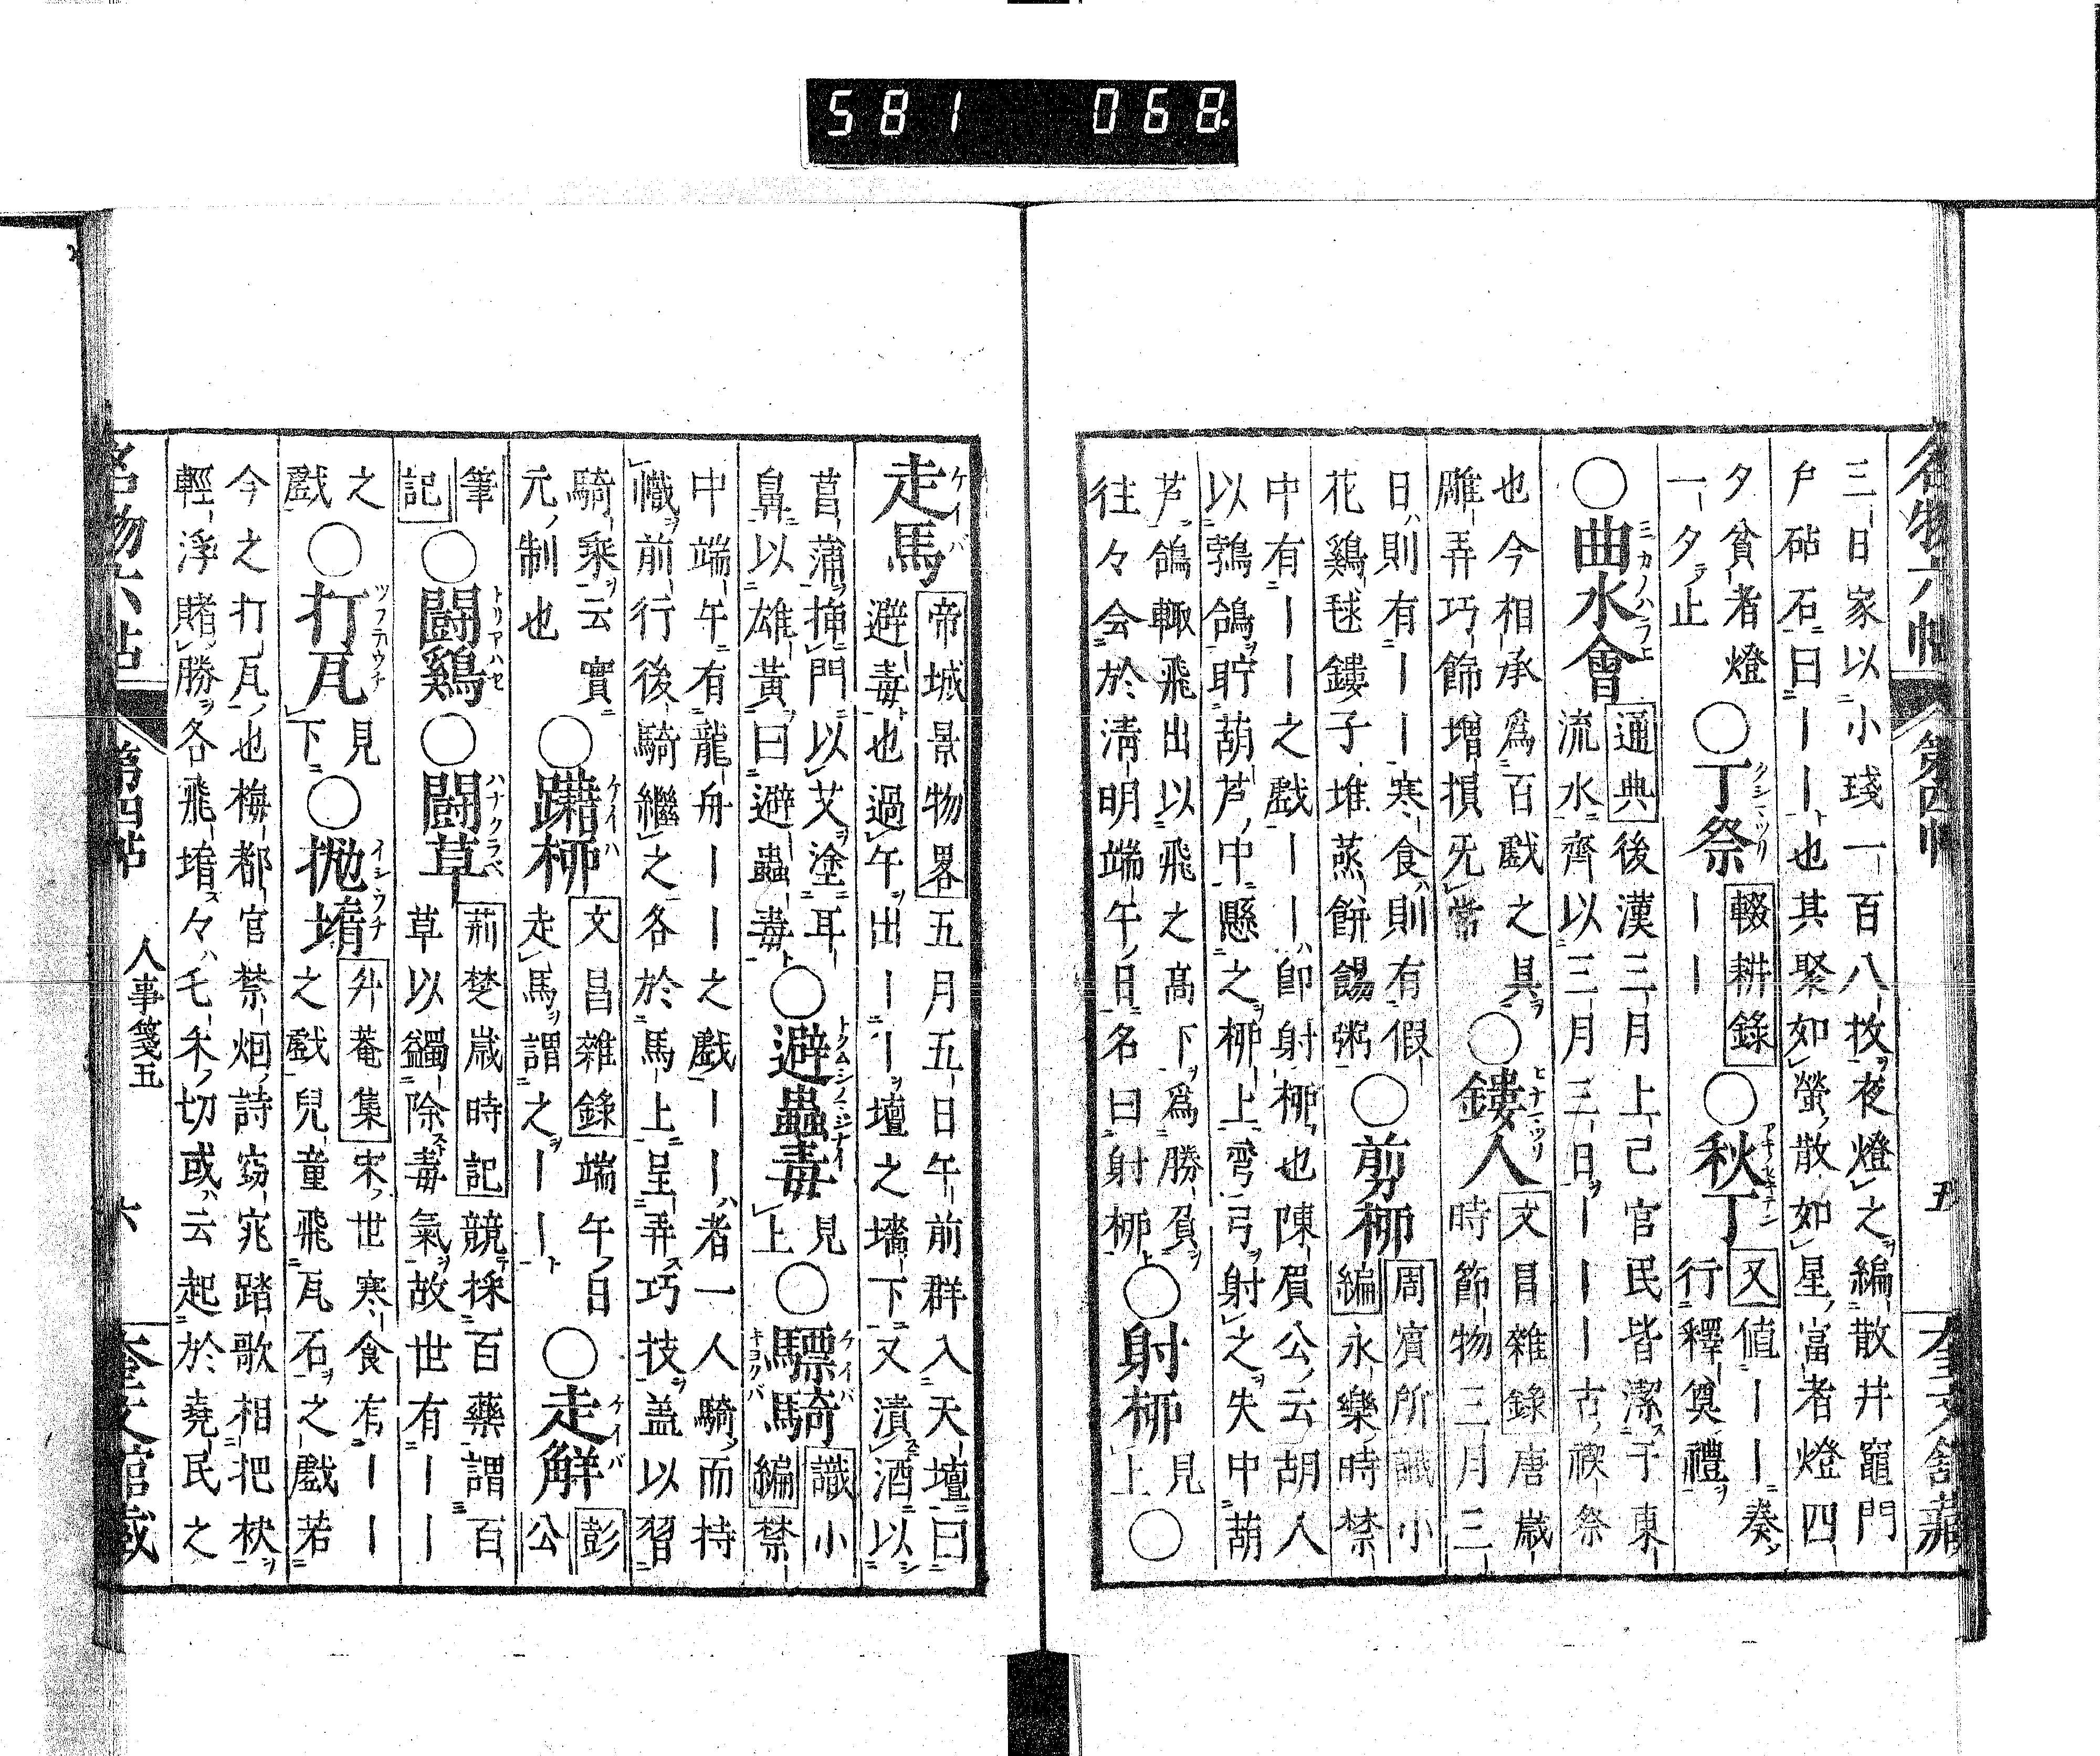 581 068
名物六帖 第四帖 五 奎文館蔵
三日家以小琖一百八枚夜燈之編散井竈門
戶砧石曰丨丨也其聚如螢散如星富者燈四
夕貧者燈
一夕止
○丁祭
輟耕錄
丨丨
○秋丁
又値丨丨奏
行釋奠禮
○曲水會
通典後漢三月上己官民皆潔于東
流水齊以三月三日丨丨丨古禊祭
也今相承爲百戲之具
雕弄巧飾增損旡常
○鏤人
文昌雜錄唐歲
時節物三月三
日則有丨丨寒食則有假
花鷄毬鏤子堆蒸餅餳粥
○剪桺
周賓所識小
編永樂時禁
中有丨丨之戲丨丨卽射桺也陳眉公云胡人
以鵓鴿貯葫芦中懸之桺上彎弓射之失中葫
芦鴿輙飛出以飛之高下爲勝負
往々会於淸明端午日名曰射桺
○射桺
見
上
○
走馬
帝城景物畧五月五日午前群入天壇曰
避毒也過午出丨丨壇之墻下又漬酒以
菖蒲揷門以艾塗耳
鼻以雄黃曰避蟲毒
○避蟲毒
見
上
○驃騎
識小
編禁
中端午有龍舟丨丨之戲丨丨者一人騎而持
幟前行後騎繼之各於馬上呈弄巧技盖以習
騎乘云實
元制也
○躤桺
文昌雜錄端午日
走馬謂之丨丨
○走解
彭
公
筆
記
○闘鷄
○闘草
荊楚歲時記競採百藥謂百
草以蠲除毒氣故世有丨丨
之
戲
○打瓦
見
下
○拋堶
升菴集宋世寒食有丨丨
之戲兒童飛瓦石之戲若
今之打瓦也梅都官禁烟詩窈窕踏歌相把袂
輕浮賭勝各飛堶々乇禾切或云起於堯民之
名物六帖 第四帖 人事箋五 六 奎文館蔵